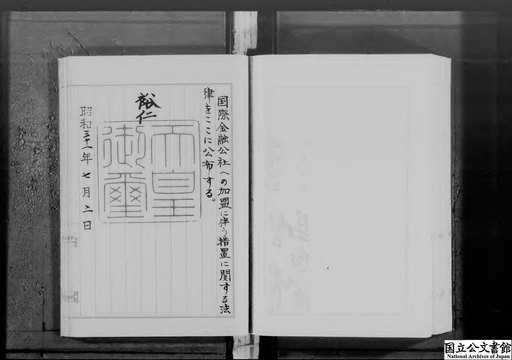 国際金融公社への加盟に伴う措置に関する法
律をここに公布する。
裕仁
天皇
御璽
昭和三十一年七月二日
国立公文書館
National Archives of Japan